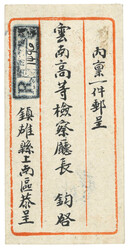 內稟一件郵呈
雲南高等檢察廳長 鈞啓
鎮雄縣上南區恭呈
R